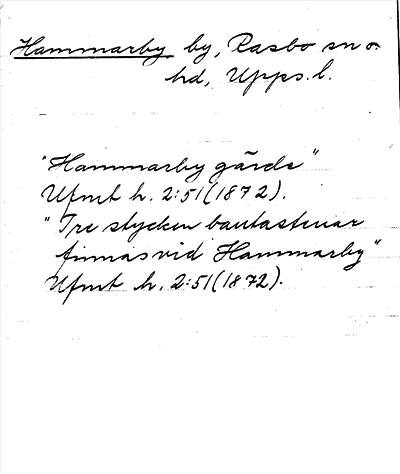 Hammarby by, Rasbo sn o.
hd, Upps. l.
"Hammarby gärde"
Ufmt h. 2:51 (1872).
"Tre stycken bautastenar
finnas vid Hammarby"
Ufmt h. 2:51 (1872).